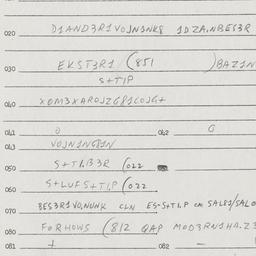 020 D1AND3R1VOJN1NK8 1DZA.NBES3R
030 EKST3R1 (851 )BAZ1N
S+T1P
040 XOM3XAROJZG81COJG+
041 0 042 0
043 VOJN1NG81N
050 S+T1.B3R (022
060 S+LUFS+T1,P (022
070 BES3R1VO,NUNK CLN ES-S+T1.P
080 FORHOWS (812 QAP MOD3RN1HA.Z3
081 + 082 -